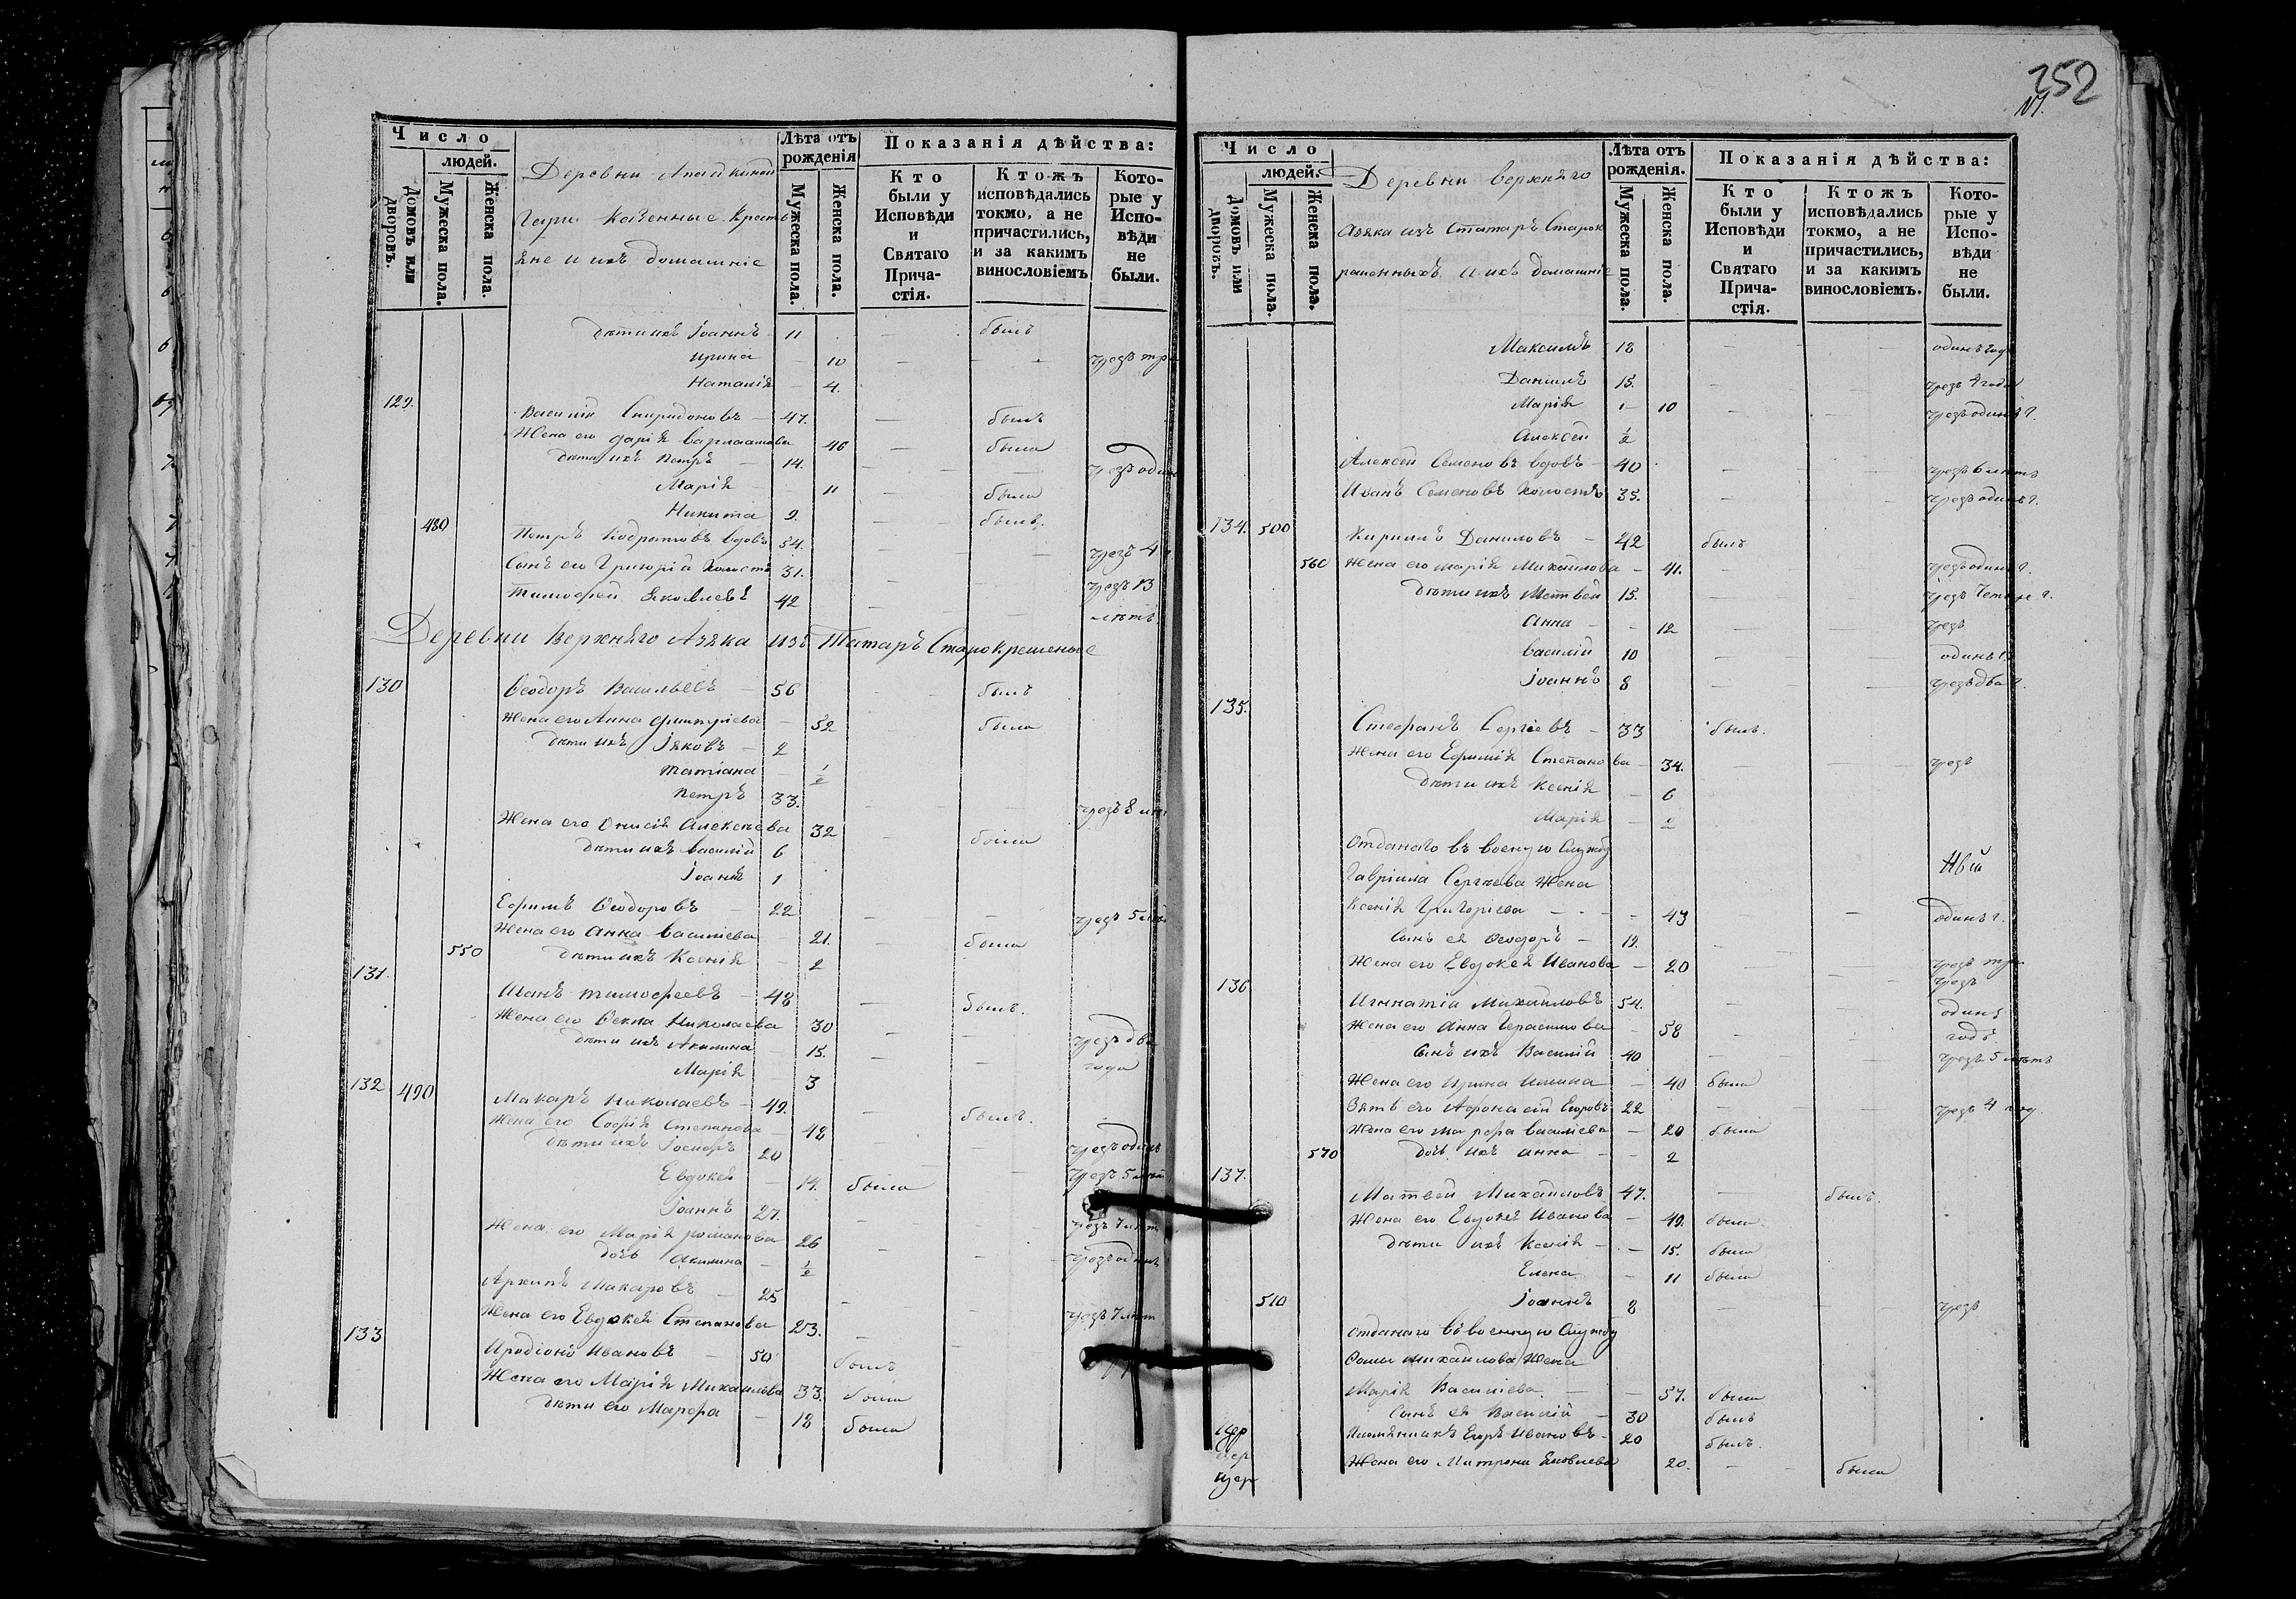 Число
людей.
Домовъ или дворовъ.
Мужеска пола.
Женска пола.
Деревни
Гари казенные Кресть
яне и ихъ домашніе
Лѣта отъ рожденія
Мужеска пола.
Женска пола.
Показанія дѣйства:
Кто были у Исповѣди и Святаго Прича-стія.
Ктожъ исповѣдались токмо, а не причастились, и за какимъ винословіемъ
Кото-рые у Испо-вѣди не были.
дѣти ихъ Іоаннъ 11 — былъ
Ирина — 10 — - чрезъ три
Наталія — 4.
129.
Василій Спиридоновъ — 47. — былъ
Жена его Дарія Варлаамова 46 — была
дѣти ихъ Петръ — 14. — — чрезъ один
Марія — 11 — была
Никита 9. — былъ.
480
Петръ Кодратовъ вдовъ 54. — — чрезъ 4 г.
Сынъ его Григорій холостъ 31. — — чрезъ 13
Тимофей Яковлевъ 42 — — лѣтъ
Деревни Верхняго Азяка изъ Татаръ Старокрешеные
130
Ѳеодоръ Васильевъ — 56 — былъ
Жена его Анна Дмитріева — 52 — была
дѣти ихъ Іяковъ — 2
Татіана — 1/2
Петръ 33. — — чрезъ 8 лѣт
Жена его Онисія Алексѣева 32 была
дѣти ихъ Василій 6
Іоаннъ 1
Ефимъ Ѳеодоровъ — 22 — — чрезъ 5 лѣт
Жена его Анна Василіева — 21. — была
550
дѣти ихъ Ксенія — 2
131.
Иванъ Тимофеевъ — 48 — былъ.
Жена его Ѳекла Николаева 30 — — чрезъ два
дѣти ихъ Акилина — 15. — — года
Марія — 3
132 490
Макаръ Николаевъ — 49. — былъ.
Жена его Софія Степанова — 48 — — чрезъ одинъ
дѣти ихъ Іосифъ 20 — — чрезъ 5 лѣт
Евдокея — 14. была
Іоаннъ 27. — — чрезъ 7 лѣт
Жена его Марія Романова 26 — — чрезъ одинъ
дочь Акилина — 1/2
Архипъ Макаровъ — 25 — — чрезъ 7 лѣт
Жена его Евдокея Степанова 23. —
133
Иродіонъ Ивановъ — 50 былъ
Жена его Марія Михаилова 33. была
дѣти его Марфа — 18 была
252
Число
людей.
Домовъ или дворовъ.
Мужеска пола.
Женска пола.
Деревни верхняго
Азяка изъ Статаръ Старок
рещенныхъ и ихъ домашніе
Лѣта отъ рожденія.
Мужеска пола.
Женска пола.
Показанія дѣйства:
Кто были у Исповѣди и Святаго Прича-стія.
Ктожъ исповѣдались токмо, а не причастились, и за какимъ винословіемъ.
Кото-рые у Испо-вѣди не были.
Максимъ 18 — — одинъ годъ
Данилъ 15. — — чрезъ 4 года
Марія — 10 — — чрезъ одинъ г.
Алексей 1/2
Алексей Семеновъ вдовъ — 40 — — чрезъ 6 лѣтъ
Иванъ Семеновъ холостъ 35. — — чрезъ одинъ г.
134. 500
Кириллъ Даниловъ — 42 былъ
560 Жена его Марія Михаилова — 41. — — чрезъ одинъ г.
дѣти ихъ Матвей 15. — — чрезъ четыре г.
Анна — - 12 — чрезъ
Василій 10 — — одинъ г.
Іоаннъ 8 — — чрезъ два г.
135.
Стефанъ Сергіевъ — 33 былъ.
Жена его Ефимія Степанова — 34. — — чрезъ
дѣти ихъ Ксенія — 6
Марія — 2
Отданаго въ военую Службу
Гавріила Сергѣева Жена
Ксенія Григоріева — - - - 43 — — одинъ г.
Сынъ ея Ѳеодоръ — 19. —
Жена его Евдокея Иванова — 20 — — чрезъ три
136 чрезъ
Игннатіи Михаиловъ 54. — — одинъ
Жена его Анна Герасимова — 58 — - годъ
Сынъ ихъ Василій 40 — — чрезъ 5 лѣтъ
Жена его Ирина Ильина — 40 была
Зять его Афонасій Егоровъ 22 — — чрезъ 4 год.
Жена его Марфа Василіева — 20 была
570 дочь ихъ Анна — - 2
137.
Матвей Михаиловъ 47. — былъ.
Жена его Евдокея Иванова — 49. была
дѣти ихъ Ксенія — - 15. была
Елена — 11 была
510 Іоаннъ 8 — — чрезъ
Отданаго въ военную Службу
Ѳомы Михаилова Жена
Марія Василіева — — 57. была
Сынъ ея Василій — 30 былъ
Племянникъ Егоръ Ивановъ — 20 былъ.
Жена его Матрона Яковлева 20. — - была
Цер
Цер
Цер